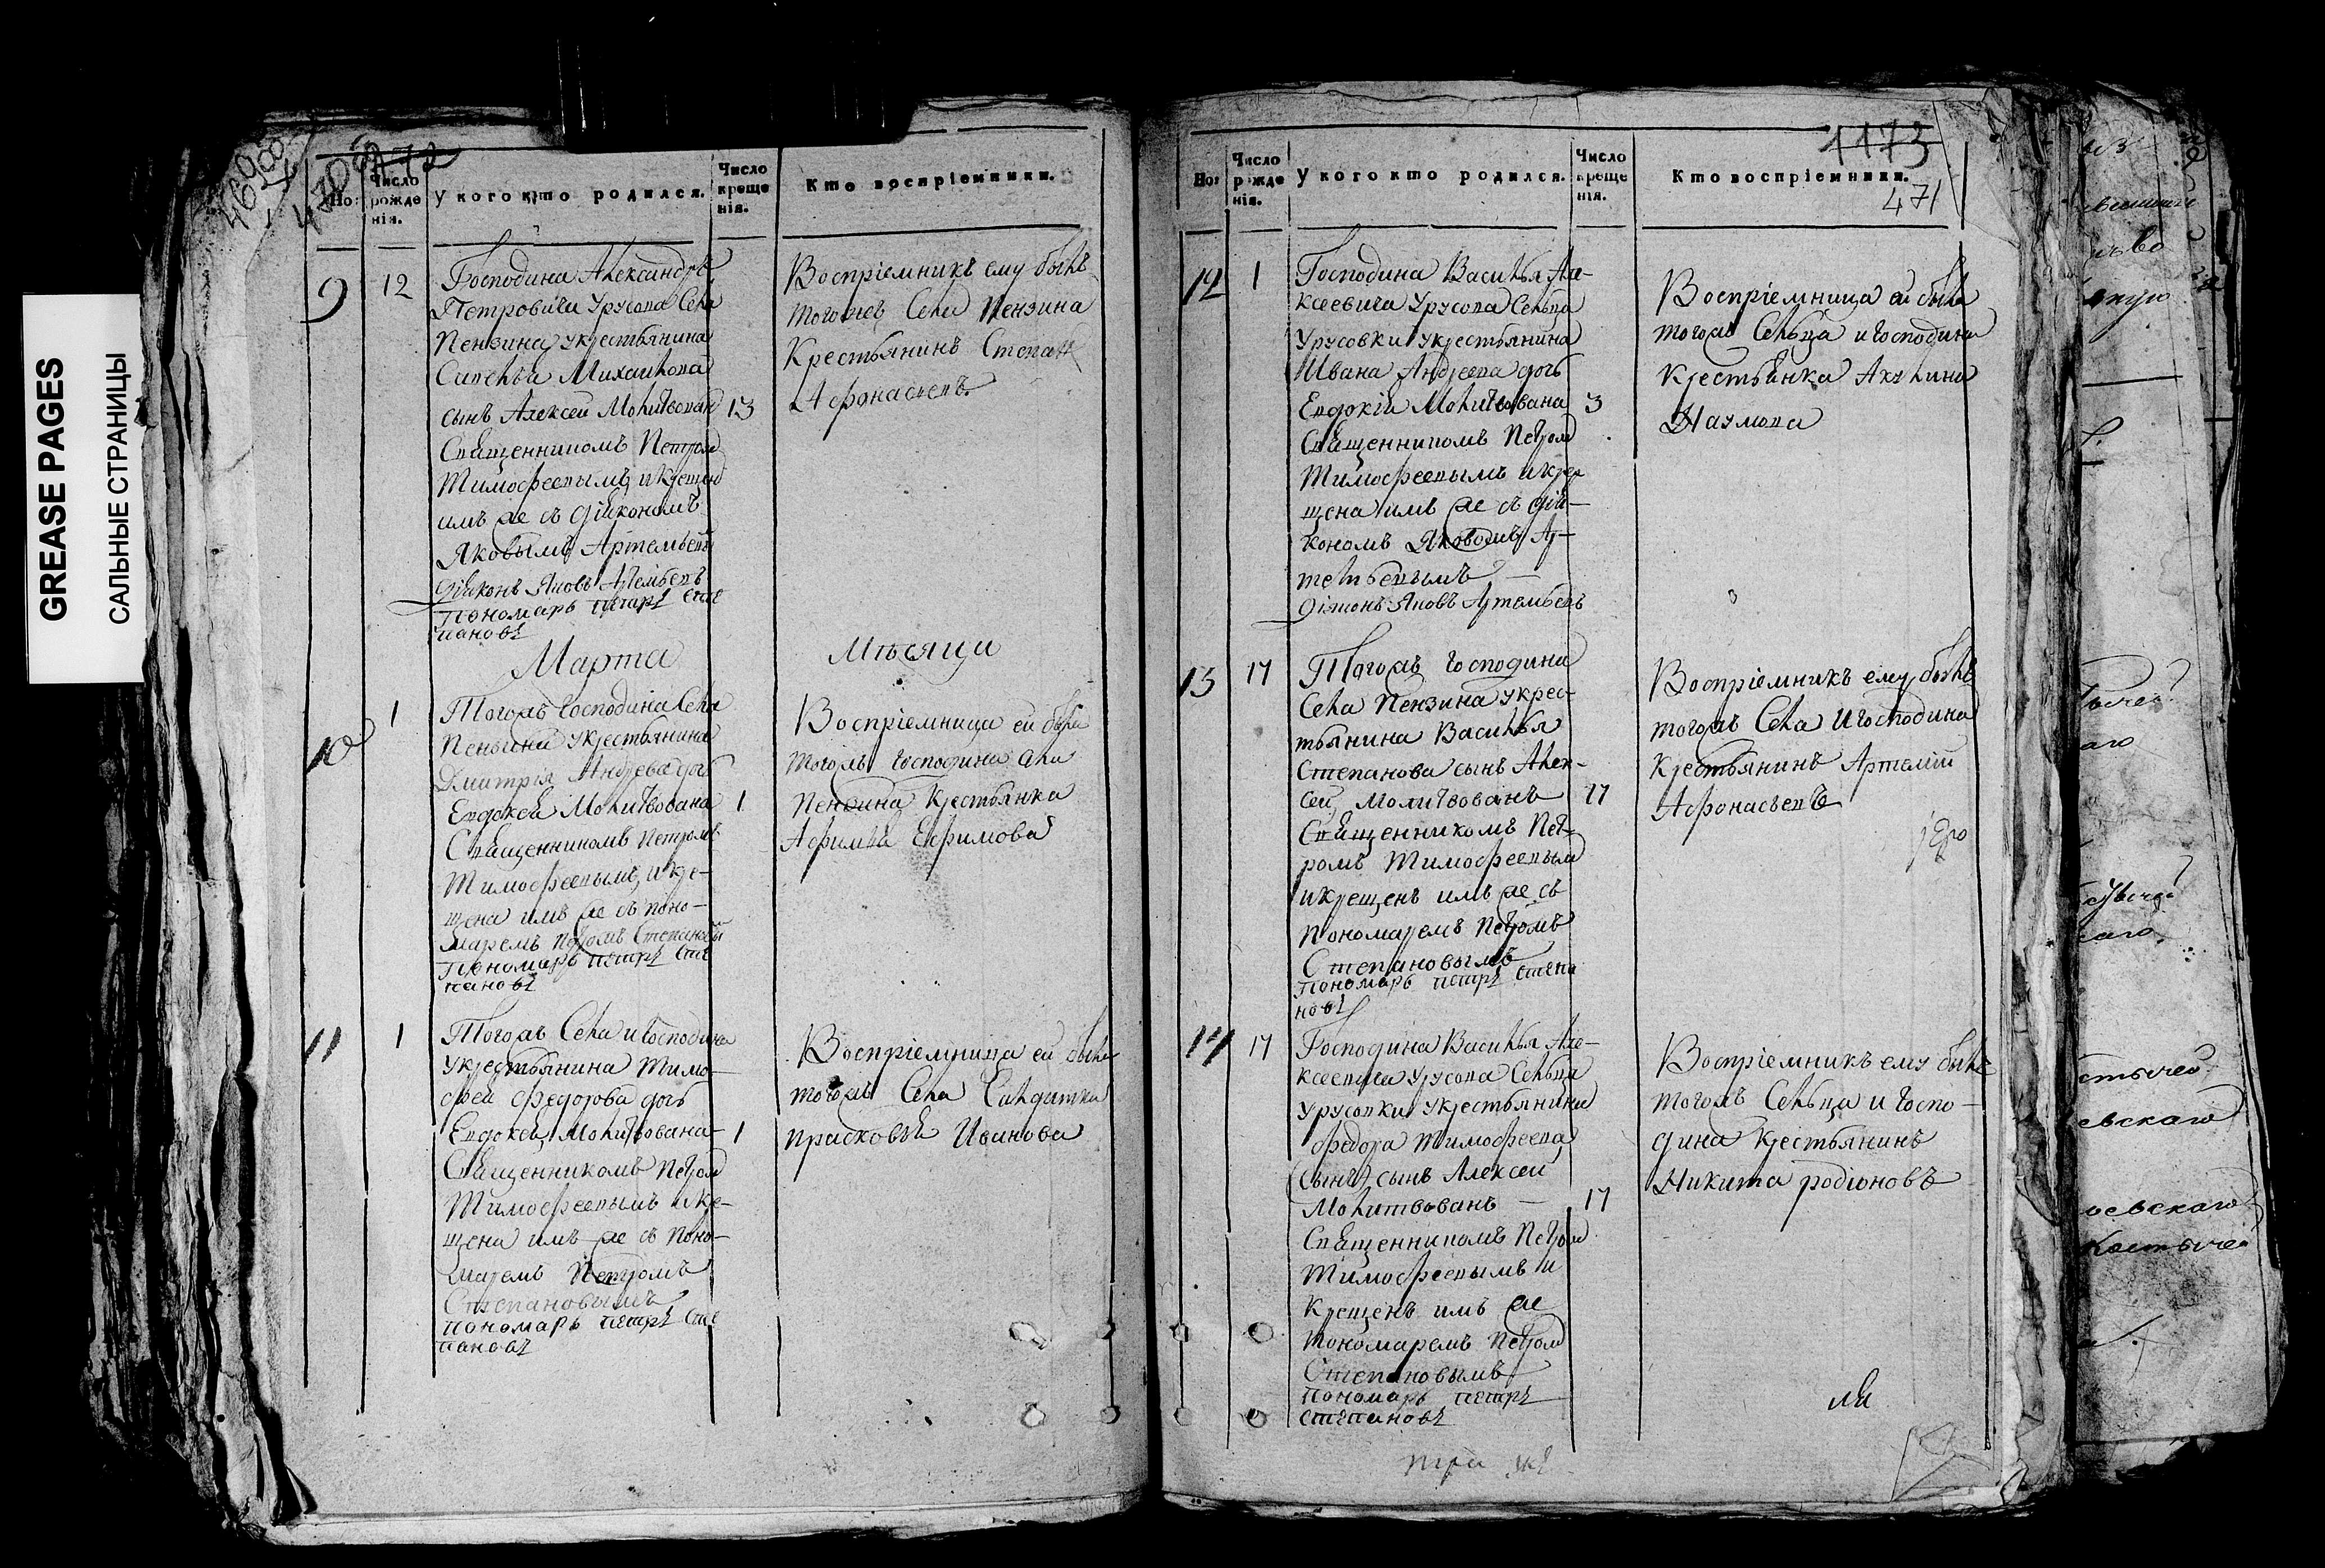 GREASE PAGES
САЛЬНЫЕ СТРАНИЦЫ
Но:
Число рожде нія.
У кого кто родился.
Число креще нія.
Кто воспріемники.
9
12
Господина Александръ
Петровича Урусова Села
Пензина укрестьянина
Савелья Михаилова
сынъ Алексей Молитвован
13
Священникомъ Петром
Тимофеевымъ, икрещен
имъ же съ діакономъ
Яковымъ Артемьевы
діяконъ Яковъ Артемьевъ
Пономарь петръ Сте
пановъ
Воспріемникъ ему былъ
тогожъ Села Пензина
Крестьянинъ Степан
Афонасьевъ.
Марта
Мѣсяца
10
1
Тогожъ Господина Села
Пензина укрестьянина
Дмитрия Андрева дочь
Евдокея Молитвована
1
Священникомъ Петромъ
Тимофеевымъ, икре-
щена имъ же съ поно-
маремъ Петромъ Степановы
Пономарь петръ Сте
пановъ
Воспріемница ей была
тогожъ Господина Села
Пензина Крестьянка
Афимья Ефримова
11
1
Тогожъ Села и Господина
укрестьянина Тимо-
фея Федорова дочь
Евдокея Молитвована
1
Священникомъ Петром
Тимофеевымъ икре-
щена имъ же съ Поно-
маремъ Петромъ
Степановымъ
пономарь петръ Сте
пановъ
Воспріемница ей была
тогожъ Села Солдатка
прасковья Иванова
1173
471
Но:
Число рожде нія.
У кого кто родился.
Число креще нія.
Кто воспріемники.
12
1
Господина Василья Але-
ксеевича Урусова Сельца
Урусовки укрестьянина
Ивана Андреева дочь
Евдокія Молитвована
3
Священникомъ Петром
Тимофеевымъ икре
щена имъ же съ діа-
кономъ Яковомъ Ар-
темьевымъ
діяконъ Яковъ Артемьевъ
Воспріемница ей была
тогожъ Сельца и Господина
Крестьянка Акулина
Наумова
13
17
Тогожъ Господина
Села Пензина укрес-
тьянина Василья
Степанова сынъ Алек-
сей Молитвованъ
17
Священникомъ Пет-
ромъ Тимофеевым
икрещенъ имъ же съ
Пономаремъ Петромъ
Степановымъ
пономарь петръ Степа
новъ
Воспріемникъ ему былъ
тогожъ Села И господина
Крестьянинъ Артемій
Афонасьевъ
14
17
Господина Василья Але-
ксеевича Урусова Сельца
Урусовки укрестьянина
Федора Тимофеева
(сынъ) сынъ Алексей
Молитвованъ
17
Священникомъ Петром
Тимофеевымъ и
Крещенъ имъ же
Пономаремъ Петром
Степановымъ
пономарь петръ
степановъ
Воспріемникъ ему былъ
тогожъ Сельца и Госпо-
дина Крестьянинъ
Никита родіоновъ